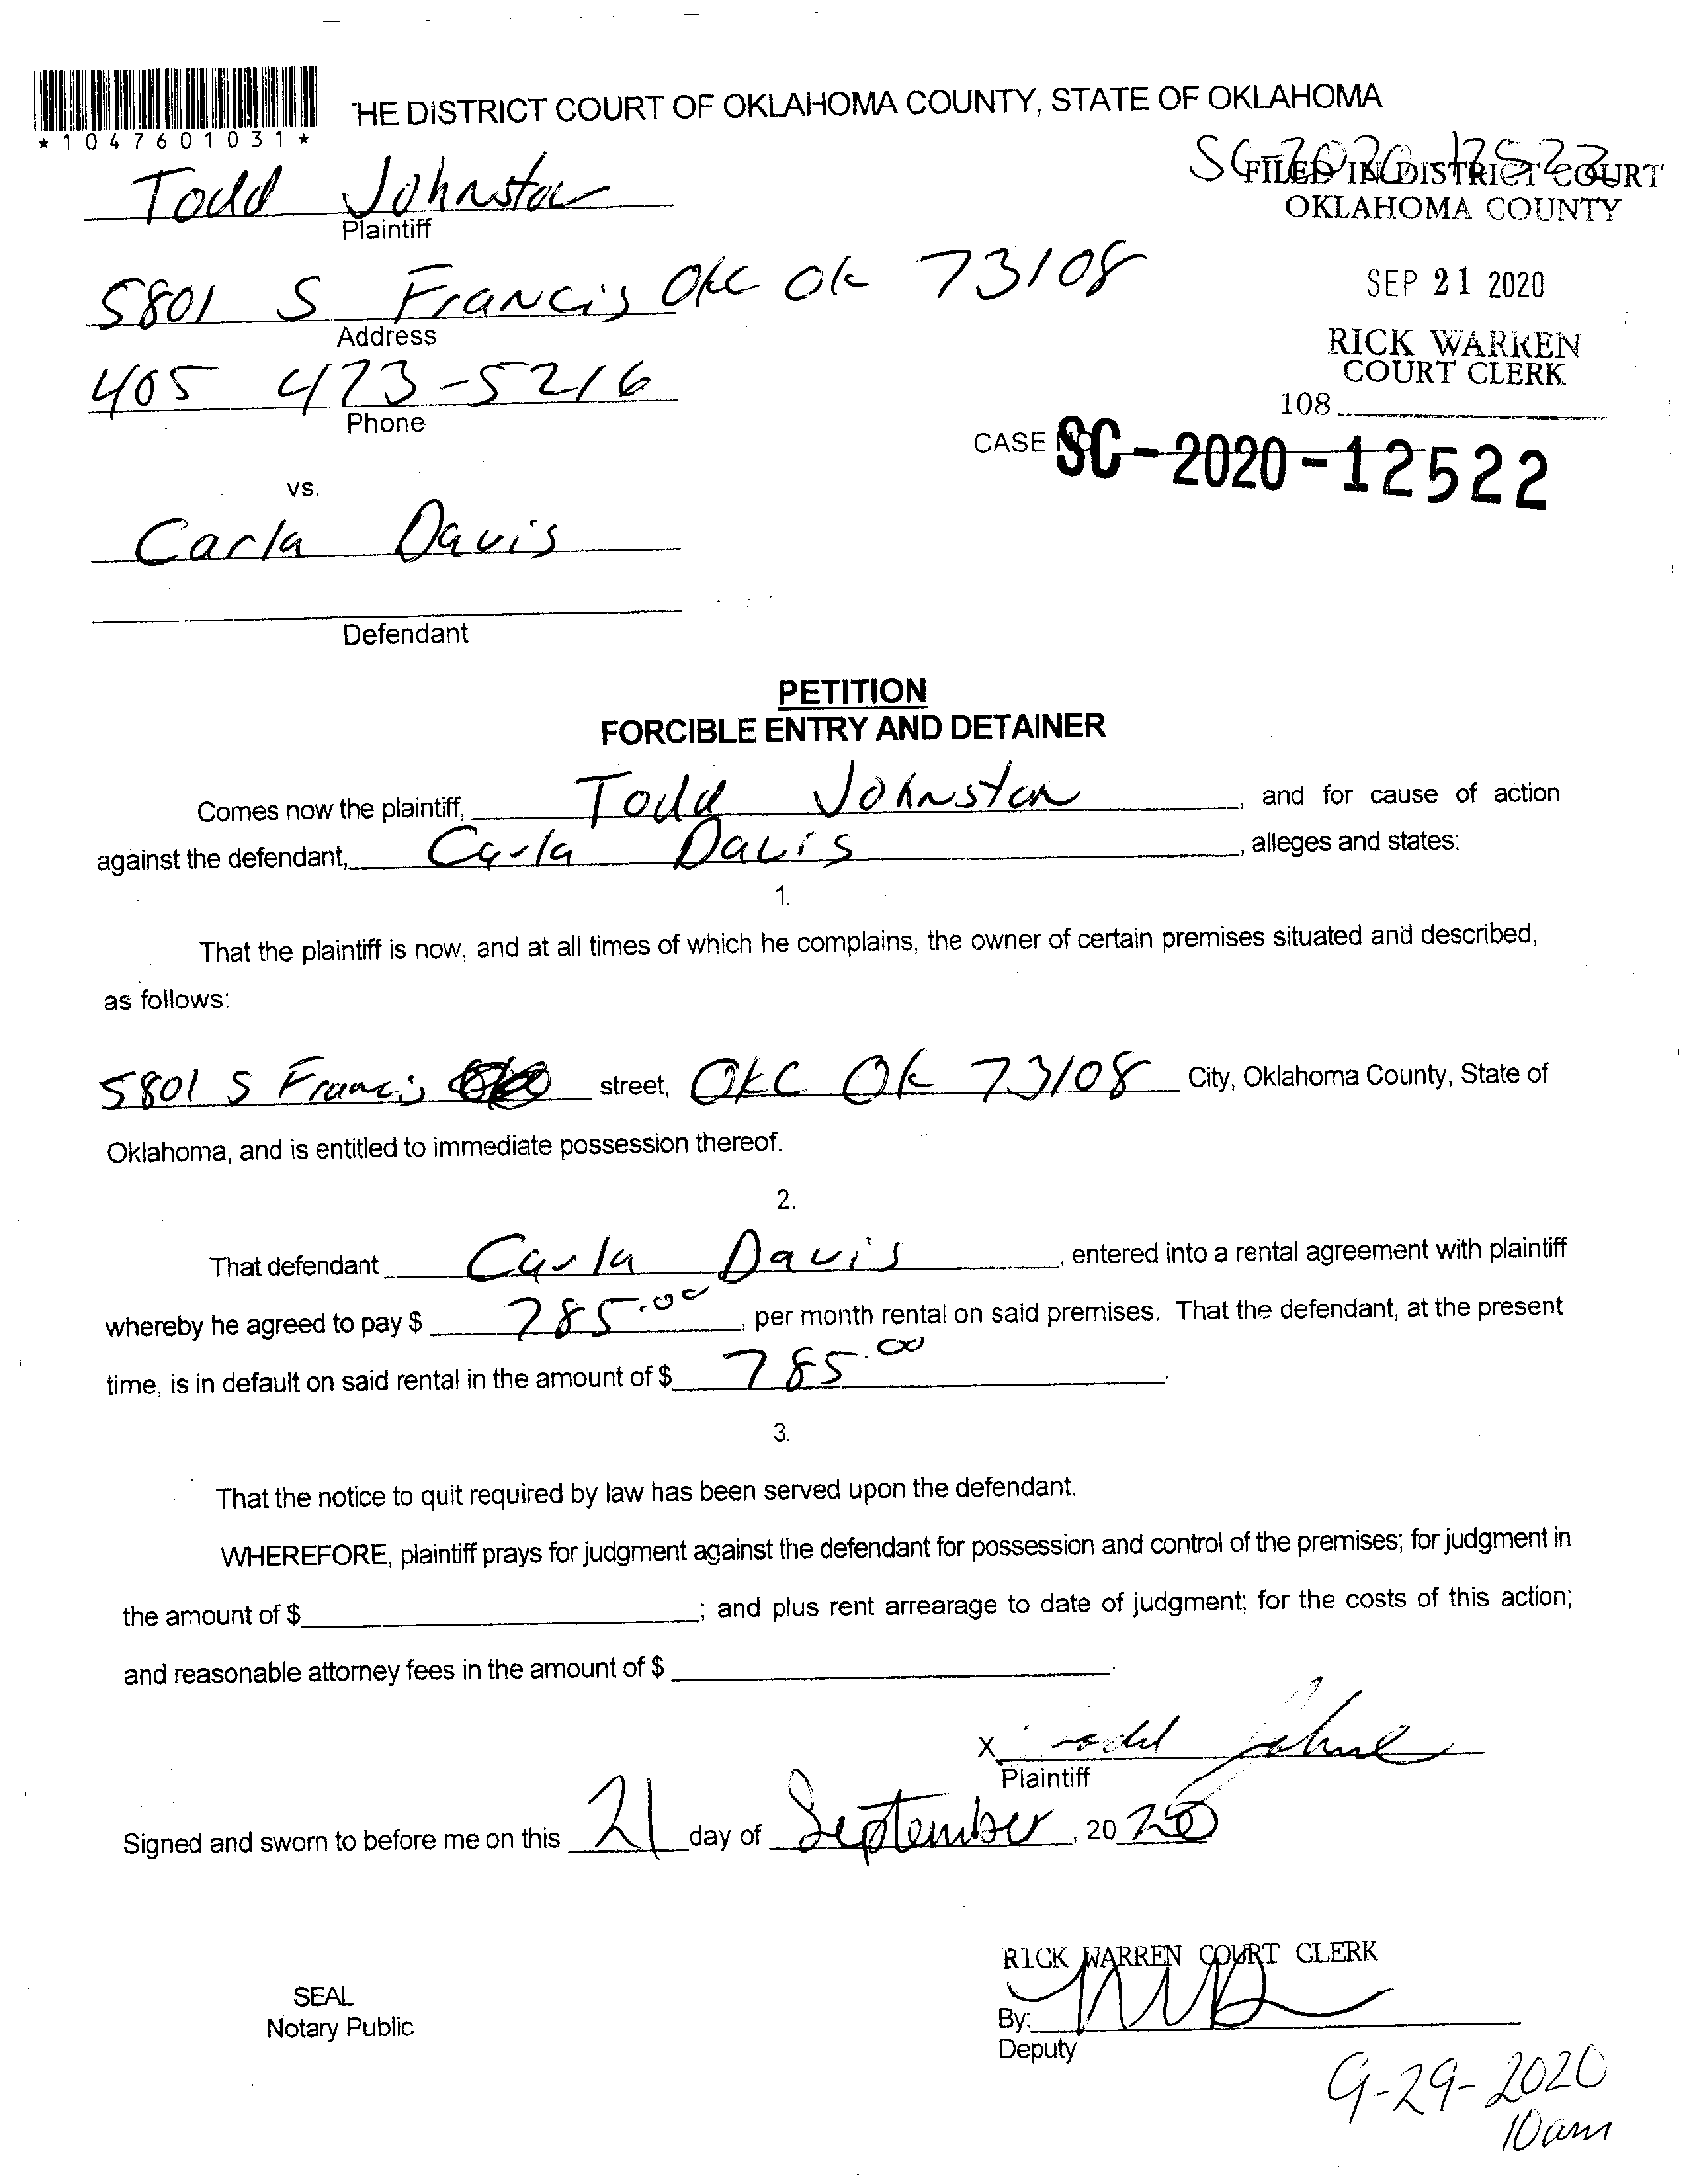 THE DISTRICT COURT OF OKLAHOMA COUNTY, STATE OF OKLAHOMA
*1047601031*
SC-2020-12522
FILED IN DISTRICT COURT
OKLAHOMA COUNTY
Todd Johnston
Plaintiff
SEP 21 2020
5801 S Francis OKC Ok 73108
Address
RICK WARREN
COURT CLERK
405 473-5216
Phone
108
CASE NO. SC-2020-12522
vs.
Carla Davis
Defendant
PETITION
FORCIBLE ENTRY AND DETAINER
Comes now the plaintiff, Todd Johnston, and for cause of action
against the defendant, Carla Davis, alleges and states:
1.
That the plaintiff is now, and at all times of which he complains, the owner of certain premises situated and described,
as follows:
5801 S Francis street, OKC Ok 73108 City, Oklahoma County, State of
Oklahoma, and is entitled to immediate possession thereof.
2.
That defendant Carla Davis, entered into a rental agreement with plaintiff
whereby he agreed to pay $ 785.00, per month rental on said premises. That the defendant, at the present
time, is in default on said rental in the amount of $ 785.00.
3.
That the notice to quit required by law has been served upon the defendant.
WHEREFORE, plaintiff prays for judgment against the defendant for possession and control of the premises; for judgment in
the amount of $; and plus rent arrearage to date of judgment; for the costs of this action;
and reasonable attorney fees in the amount of $.
X
Plaintiff
Signed and sworn to before me on this 21 day of September, 2020
RICK WARREN COURT CLERK
SEAL
Notary Public
By:
Deputy
9-29-2020
10am